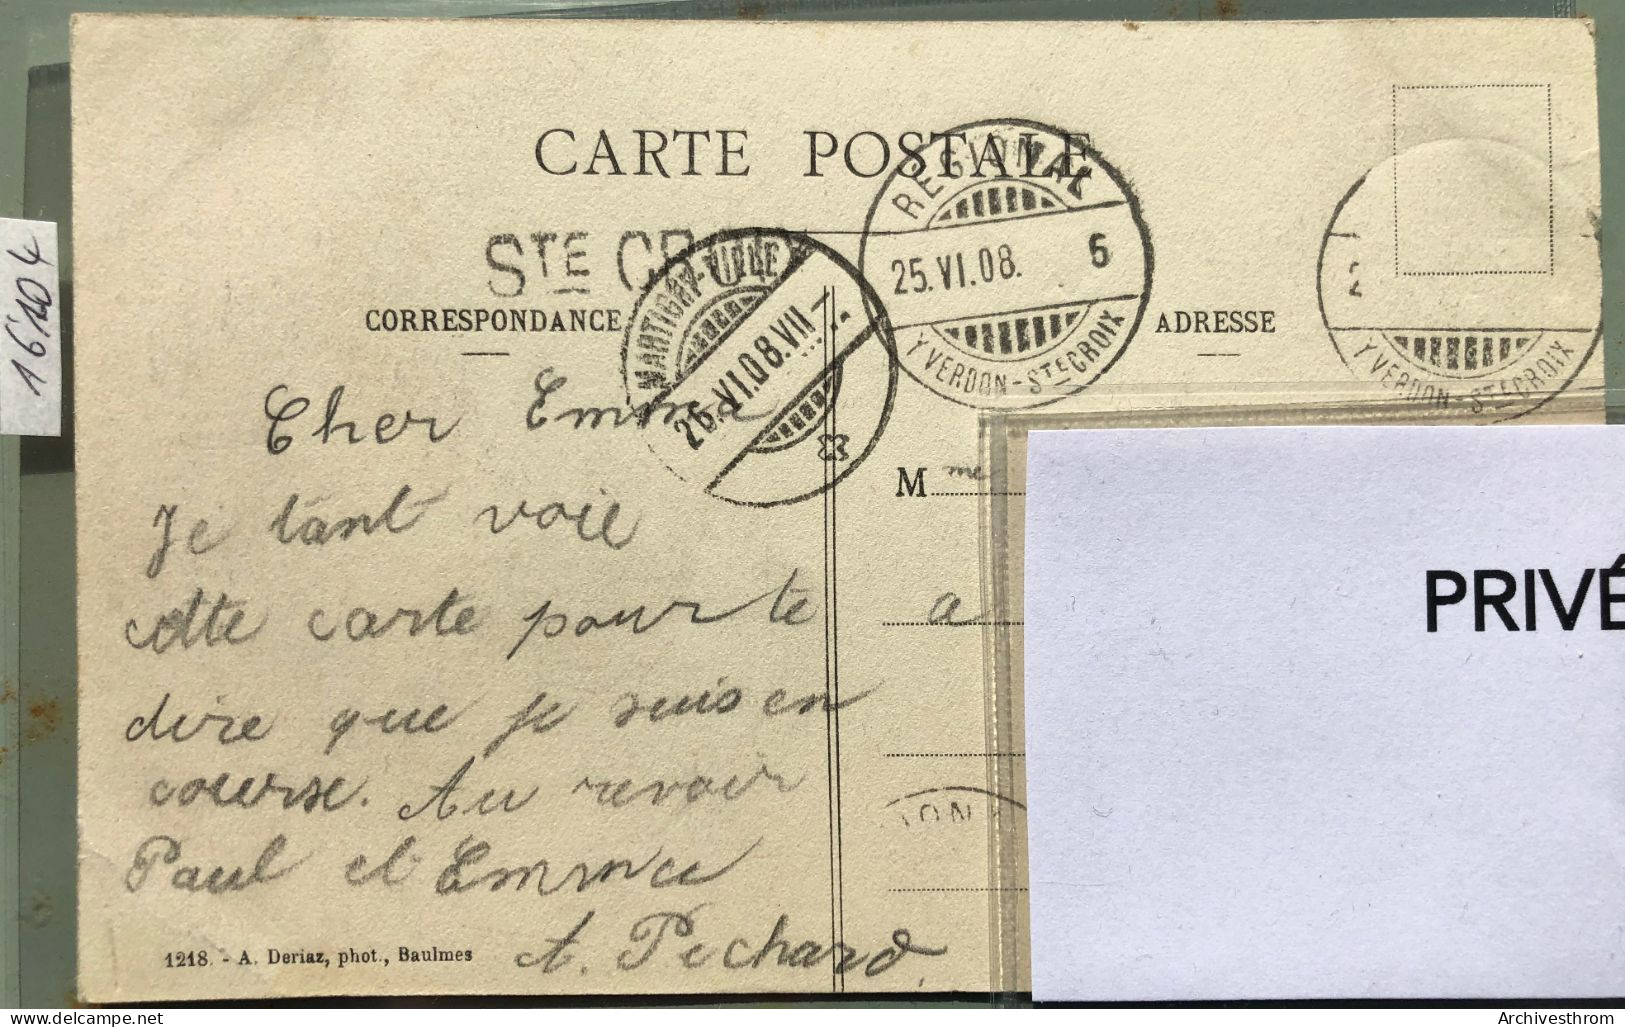 CARTE POSTALE
REGIONAL
25.VI.08. 6
YVERDON-STECROIX
STE CR
MARTIGNY-VILLE
26.VI.08.VII-
YVERDON-STECROIX
CORRESPONDANCE
ADRESSE
16104
Cher Emma
Je tant voie
cette carte pour te
dire que je suis en
course. Au revoir
Paul et Emma
A. Pechard.
Mme
a
PRIVÉ
ION
1218. - A. Deriaz, phot., Baulmes
delcampe.net
Archivesthrom